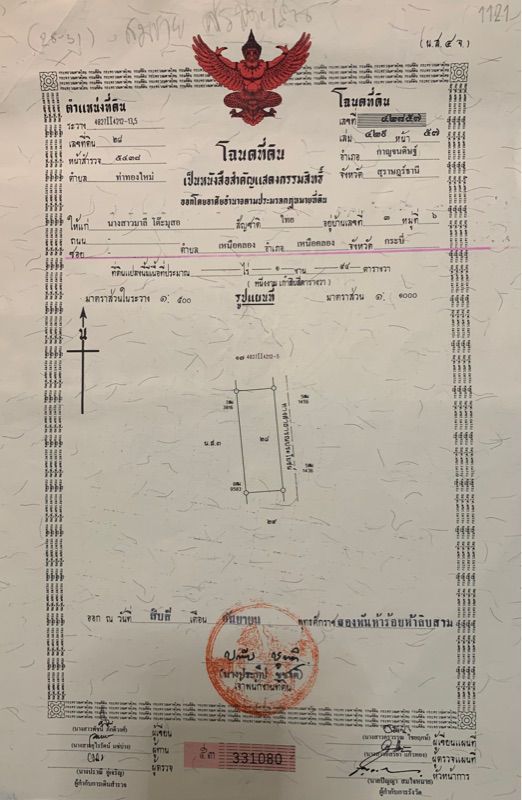 1121
(น.ส.๔ จ.)
ตำแหน่งที่ดิน
ระวาง 4827 II 4212-13,5
เลขที่ดิน ๒๘
หน้าสำรวจ ๕๔๓๘
ตำบล ท่าทองใหม่
โฉนดที่ดิน
เลขที่ ๔๒๘๕๗
เล่ม ๔๒๙ หน้า ๕๗
อำเภอ กาญจนดิษฐ์
จังหวัด สุราษฎร์ธานี
โฉนดที่ดิน
เป็นหนังสือสำคัญแสดงกรรมสิทธิ์
ออกโดยอาศัยอำนาจตามประมวลกฎหมายที่ดิน
ให้แก่ นางสาวมาลี โต๊ะมุสอ สัญชาติ ไทย อยู่บ้านเลขที่ ๓ หมู่ที่ ๖
ถนน -
ซอย - ตำบล เหนือคลอง อำเภอ เหนือคลอง จังหวัด กระบี่
ที่ดินแปลงนี้มีเนื้อที่ประมาณ - ไร่ ๑ งาน ๙๔ ตารางวา
( หนึ่งงาน เก้าสิบสี่ตารางวา )
มาตราส่วนในระวาง ๑: ๕๐๐ รูปแผนที่ มาตราส่วน ๑: ๑๐๐๐
น
๑๗ 4827 II 4212-5
น.ส.๓
๒๘
ทางสาธารณประโยชน์
๒๙
ออก ณ วันที่ สิบสี่ เดือน กันยายน พุทธศักราช สองพันห้าร้อยห้าสิบสาม
เจ้าพนักงานที่ดิน
ผู้เขียน
ผู้ทาน
ผู้ตรวจ
ผู้กำกับการเดินสำรวจ
331080
ผู้เขียนแผนที่
ผู้ตรวจแผนที่
หัวหน้าการ
ผู้กำกับการรังวัด